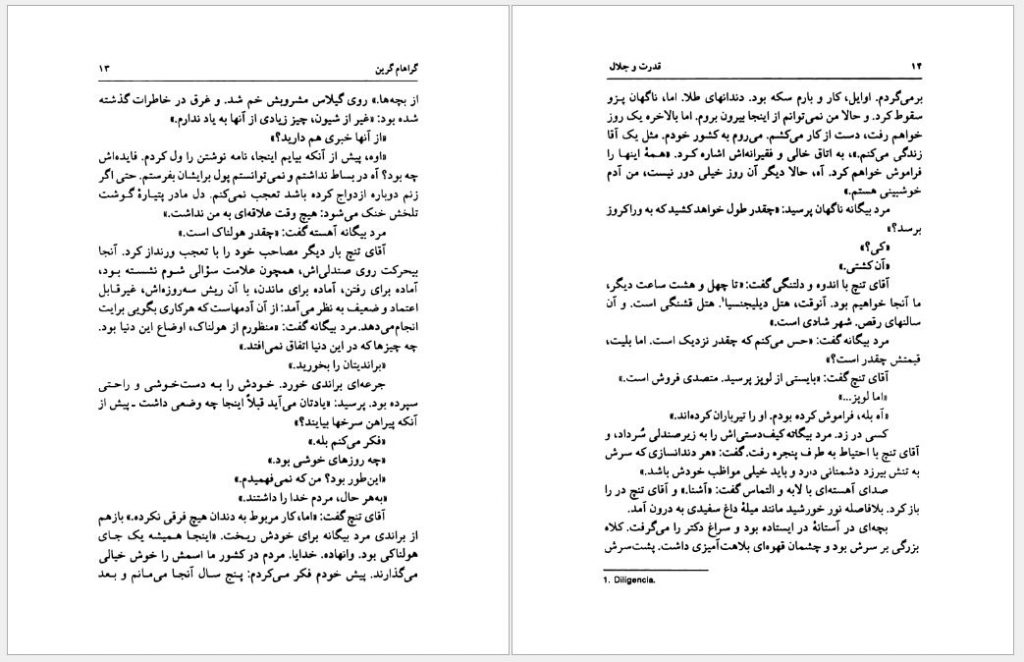 گراهام گرین ۱۳
از بچه‌ها.» روی گیلاس مشروبش خم شد. و غرق در خاطرات گذشته
شده بود: «غیر از شیون، چیز زیادی از آنها به یاد ندارم.»
«از آنها خبری هم دارید؟»
«اوه، پیش از آنکه بیایم اینجا، نامه نوشتن را ول کردم. فایده‌اش
چه بود؟ آه در بساط نداشتم و نمی‌توانستم پول برایشان بفرستم. حتی اگر
زنم دوباره ازدواج کرده باشد تعجب نمی‌کنم. دل مادر پتیارهٔ گوشت
تلخش خنک می‌شود: هیچ وقت علاقه‌ای به من نداشت.»
مرد بیگانه آهسته گفت: «چقدر هولناک است.»
آقای تنچ بار دیگر مصاحب خود را با تعجب ورنداز کرد. آنجا
بیحرکت روی صندلی‌اش، همچون علامت سؤالی شوم نشسته بود،
آماده برای رفتن، آماده برای ماندن، با آن ریش سه‌روزه‌اش، غیرقابل
اعتماد و ضعیف به نظر می‌آمد: از آن آدمهاست که هرکاری بگویی برایت
انجام می‌دهد. مرد بیگانه گفت: «منظورم از هولناک، اوضاع این دنیا بود.
چه چیزها که در این دنیا اتفاق نمی‌افتد.»
«براندیتان را بخورید.»
جرعه‌ای براندی خورد. خودش را به دست‌خوشی و راحتی
سپرده بود. پرسید: «یادتان می‌آید قبلاً اینجا چه وضعی داشت ـ پیش از
آنکه پیراهن سرخها بیایند؟»
«فکر می‌کنم بله.»
«چه روزهای خوشی بود.»
«این‌طور بود؟ من که نمی‌فهمیدم.»
«به‌هر حال، مردم خدا را داشتند.»
آقای تنچ گفت: «اما، کار مربوط به دندان هیچ فرقی نکرده.» بازهم
از براندی مرد بیگانه برای خودش ریخت. «اینجا همیشه یک جای
هولناکی بود. وانهاده. خدایا. مردم در کشور ما اسمش را خوش خیالی
می‌گذارند. پیش خودم فکر می‌کردم: پنج سال آنجا می‌مانم و بعد
۱۴ قدرت و جلال
برمی‌گردم. اوایل، کار و بارم سکه بود. دندانهای طلا. اما، ناگهان پزو
سقوط کرد. و حالا من نمی‌توانم از اینجا بیرون بروم. اما بالاخره یک روز
خواهم رفت، دست از کار می‌کشم. می‌روم به کشور خودم. مثل یک آقا
زندگی می‌کنم.»، به اتاق خالی و فقیرانه‌اش اشاره کرد. «همهٔ اینها را
فراموش خواهم کرد. آه، حالا دیگر آن روز خیلی دور نیست، من آدم
خوشبینی هستم.»
مرد بیگانه ناگهان پرسید: «چقدر طول خواهد کشید که به وراکروز
برسد؟»
«کی؟»
«آن کشتی.»
آقای تنچ با اندوه و دلتنگی گفت: «تا چهل و هشت ساعت دیگر،
ما آنجا خواهیم بود. آنوقت، هتل دیلیجنسیا¹. هتل قشنگی است. و آن
سالنهای رقص. شهر شادی است.»
مرد بیگانه گفت: «حس می‌کنم که چقدر نزدیک است. اما بلیت،
قیمتش چقدر است؟»
آقای تنچ گفت: «بایستی از لوپز پرسید. متصدی فروش است.»
«اما لوپز...»
«آه بله، فراموش کرده بودم. او را تیرباران کرده‌اند.»
کسی در زد. مرد بیگانه کیف‌دستی‌اش را به زیرصندلی سُرداد، و
آقای تنچ با احتیاط به طرف پنجره رفت. گفت: «هر دندانسازی که سرش
به تنش بیرزد دشمنانی دارد و باید خیلی مواظب خودش باشد.»
صدای آهسته‌ای با لابه و التماس گفت: «آشنا.» و آقای تنچ در را
باز کرد. بلافاصله نور خورشید مانند میلهٔ داغ سفیدی به درون آمد.
بچه‌ای در آستانهٔ در ایستاده بود و سراغ دکتر را می‌گرفت. کلاه
بزرگی بر سرش بود و چشمان قهوه‌ای بلاهت‌آمیزی داشت. پشت‌سرش
1. Diligencia.